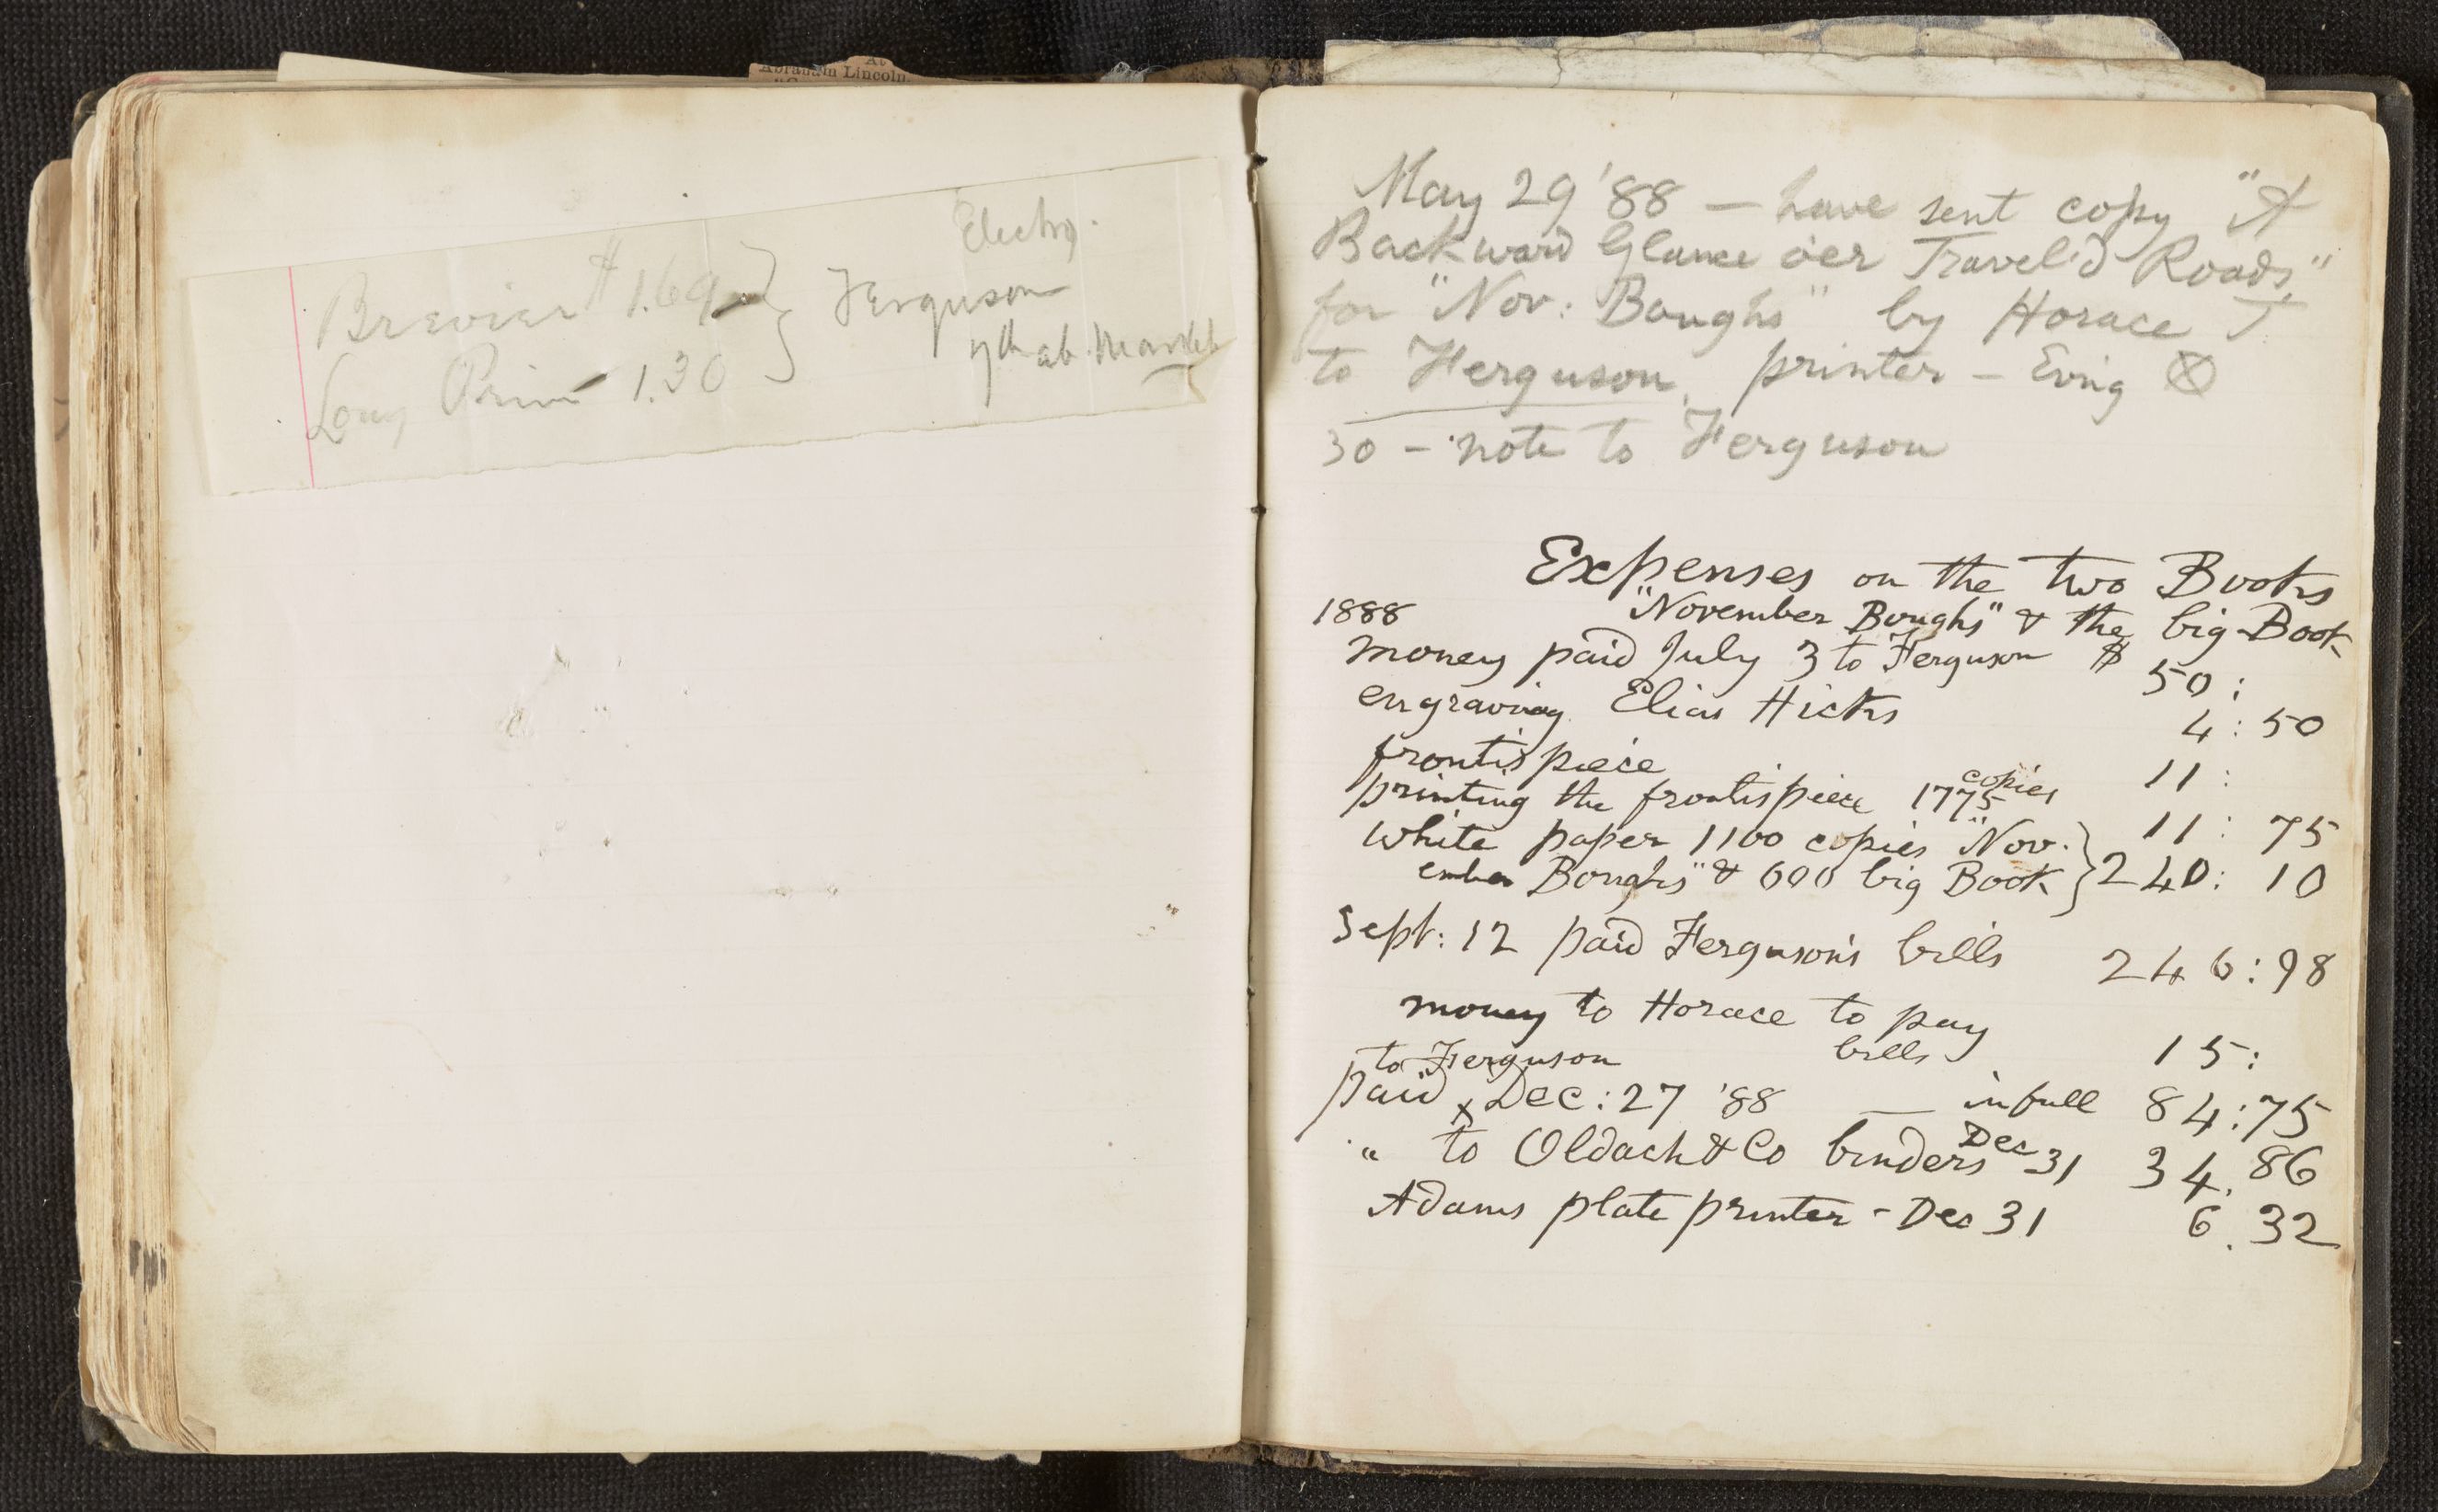 At
Abraham Lincoln.
Electro.
Brevier $1.69
Long Prim 1.30
Ferguson
7th ab. Market
May 29 '88 — have sent copy "A
Backward Glance o'er Travel'd Roads"
for "Nov: Boughs" by Horace T
to Ferguson, printer – Ev'ng ⊗
30 – note to Ferguson
Expenses on the two Books
1888 "November Boughs" & the big Book
money paid July 3 to Ferguson $ 50:
engraving Elias Hicks 4:50
frontispiece 11:
printing the frontispiece 1775 copies 11:75
white paper 1100 copies "Nov.
ember Boughs" & 600 big Book } 240:10
Sept: 12 paid Ferguson's bills 246:98
money to Horace to pay
bills 15:
to Ferguson
paid x Dec: 27 '88 — in full 84:75
" to Oldach & Co binders Dec 31 34.86
Adams plate printer – Dec 31 6.32